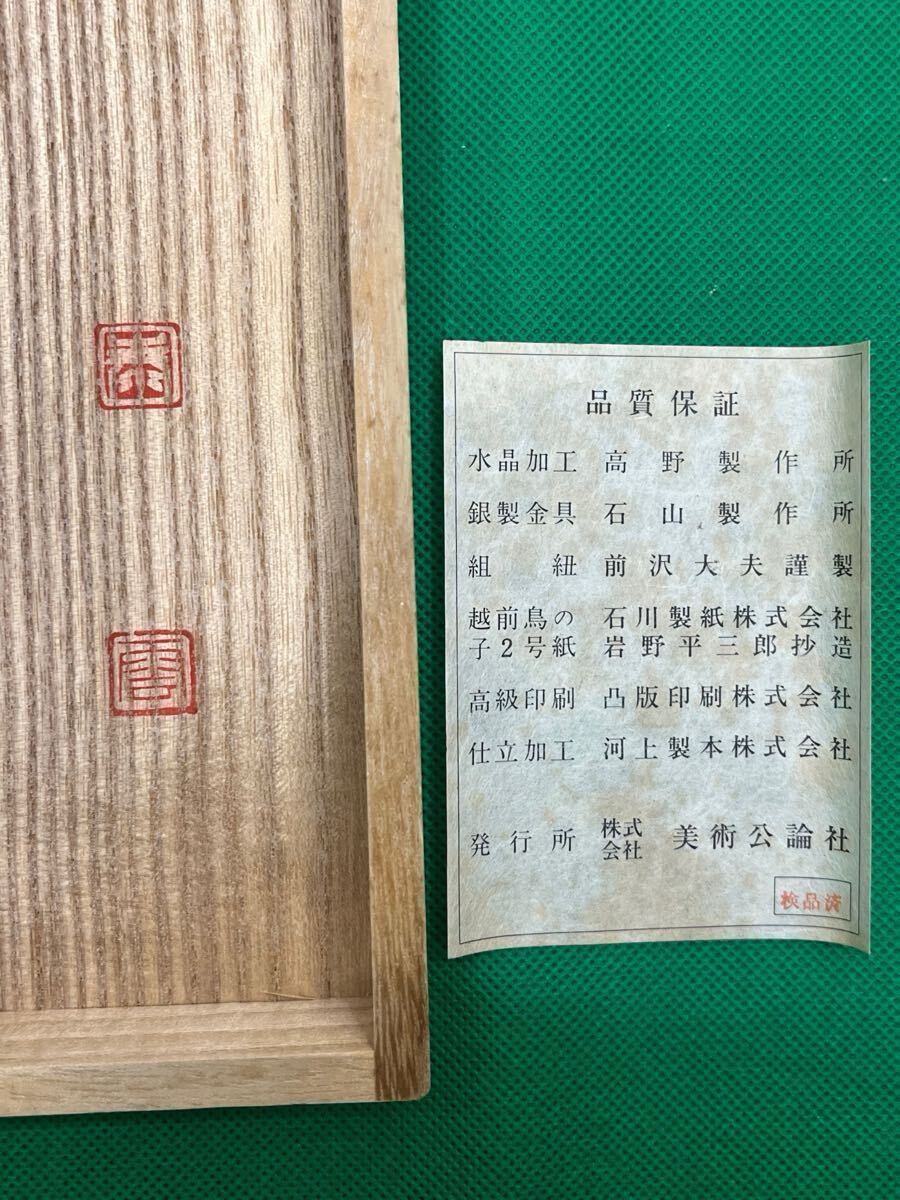 品質保証
水晶加工 高野製作所
銀製金具 石山製作所
組紐 前沢大夫謹製
越前鳥の 石川製紙株式会社
子2号紙 岩野平三郎抄造
高級印刷 凸版印刷株式会社
仕立加工 河上製本株式会社
発行所 株式会社 美術公論社
検品済